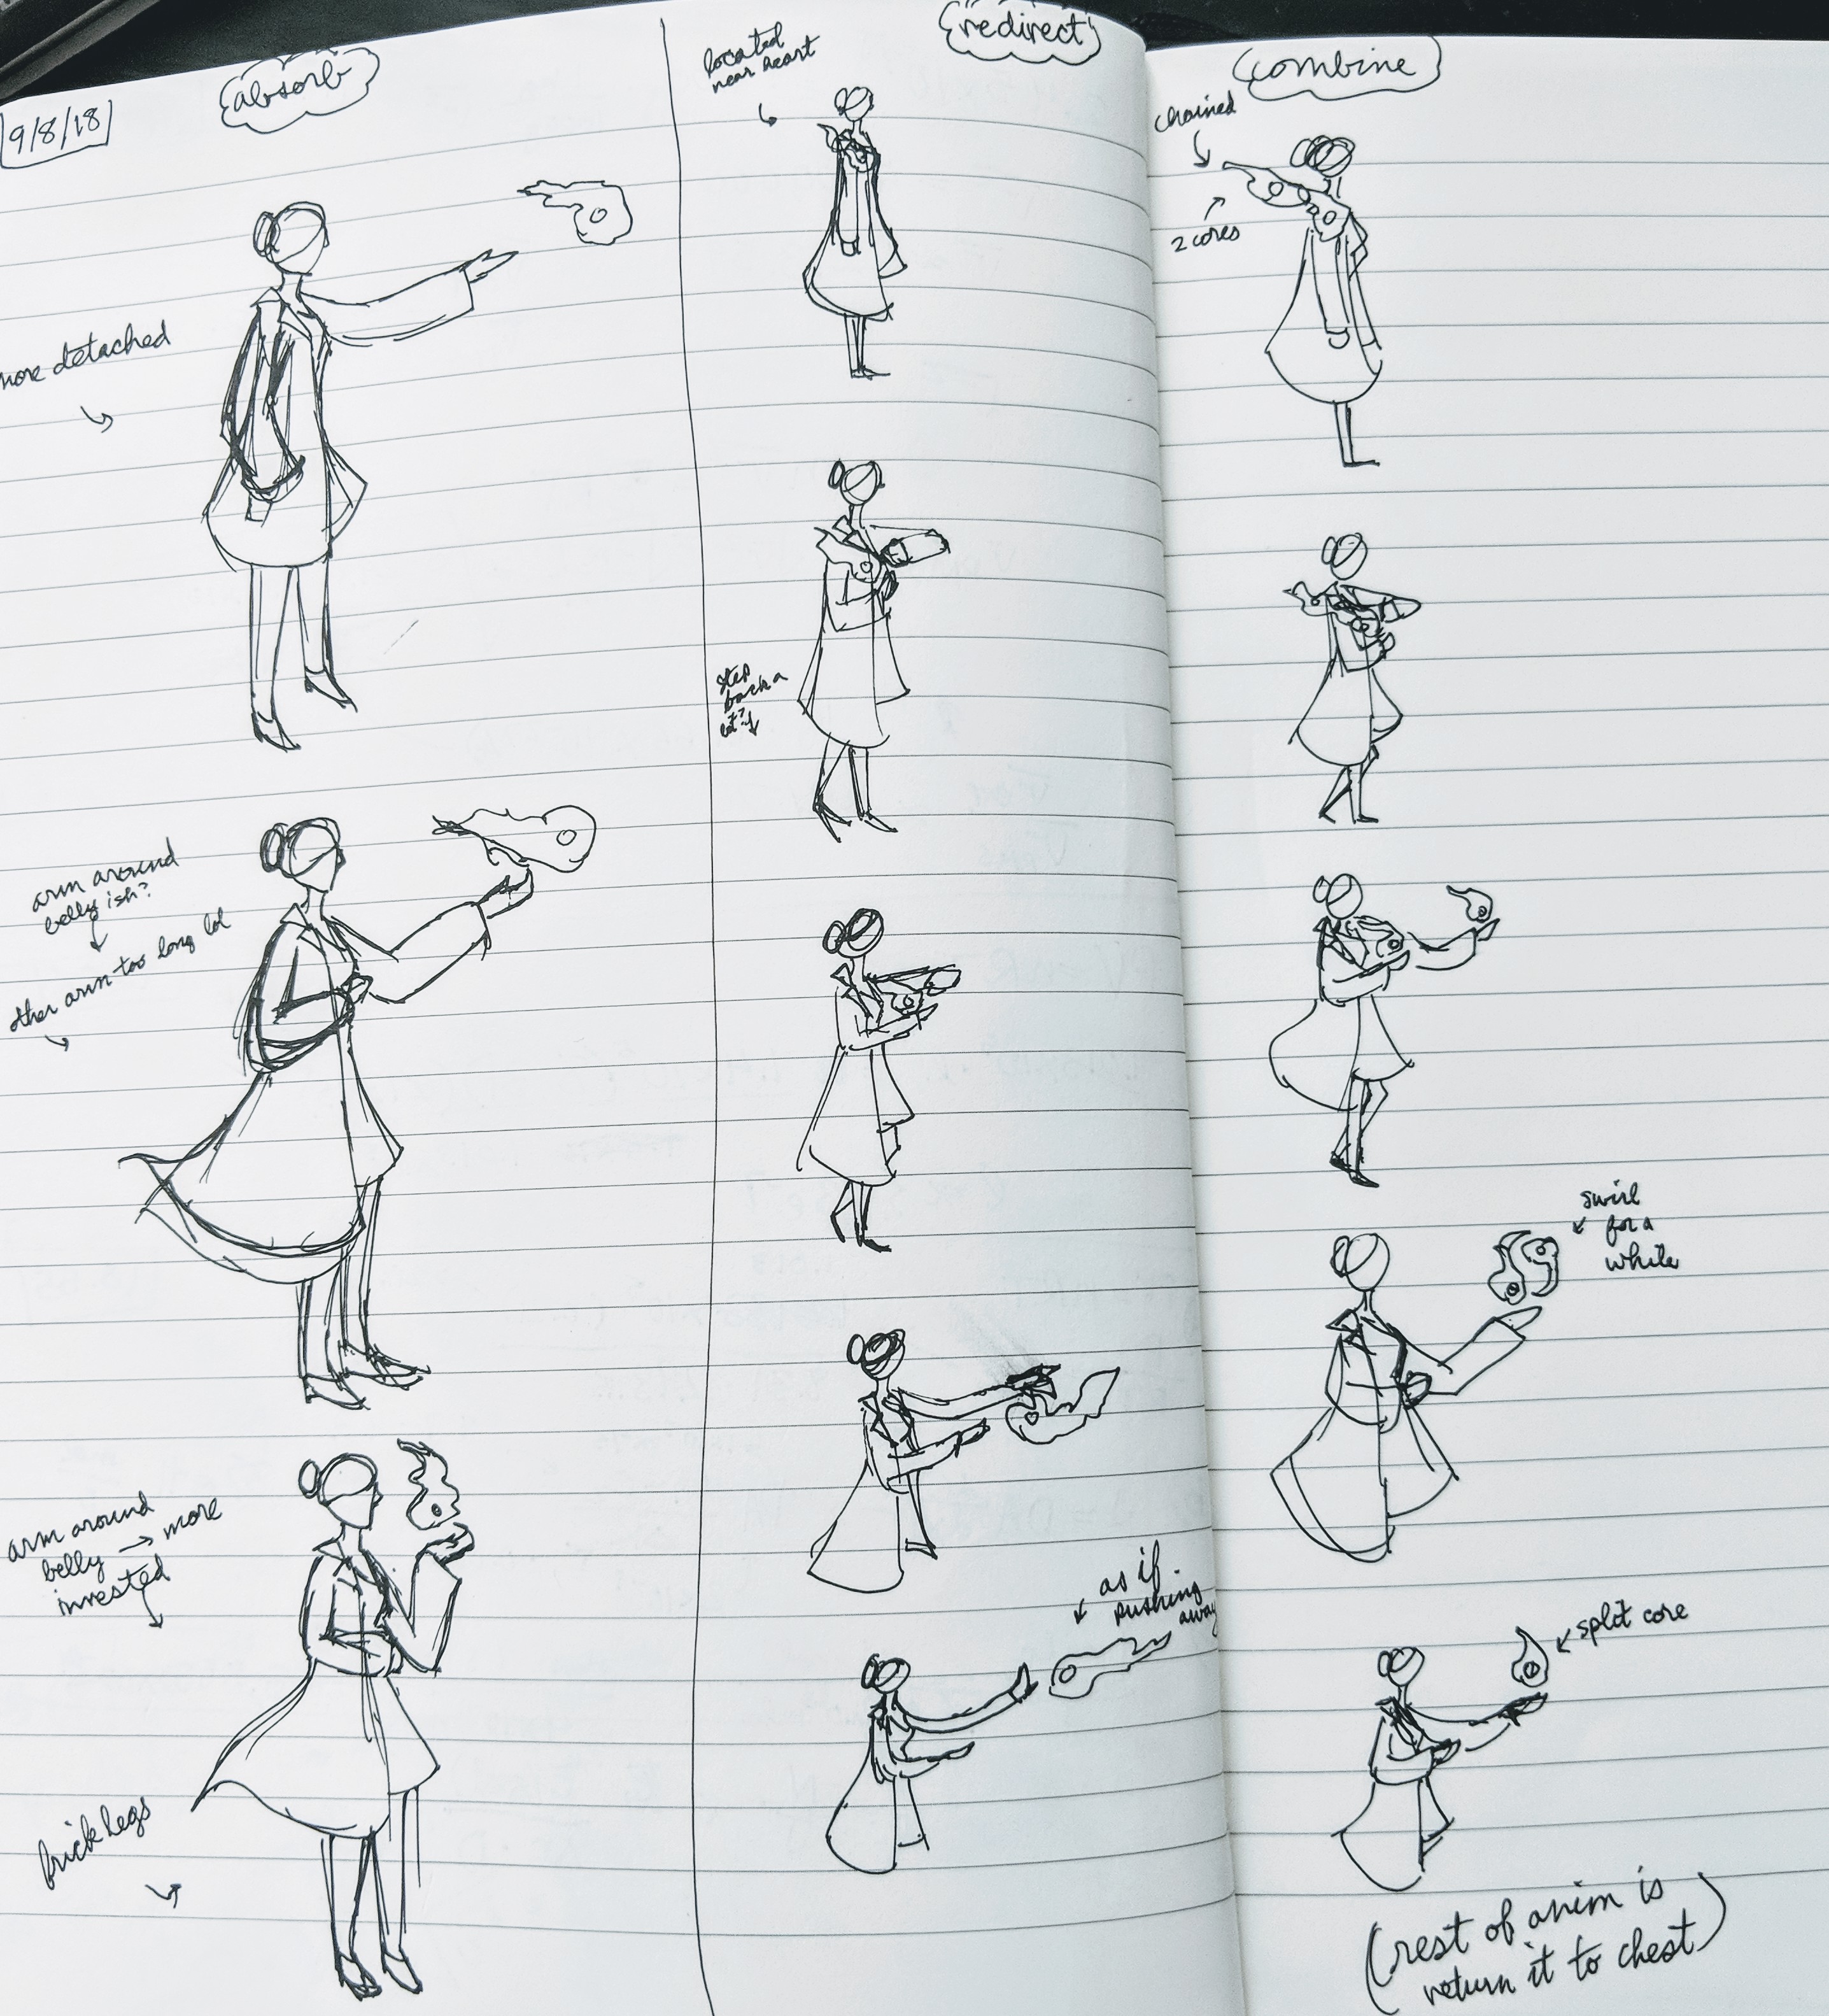 9/8/18
absorb
more detached
arm around
belly ish?
other arm too long lol
arm around
belly → more
invested
legs
located
near heart
redirect
step
back a
as if
pushing
away
combine
chained
2 cores
swirl
for a
while
split core
(rest of anim is
return it to chest)